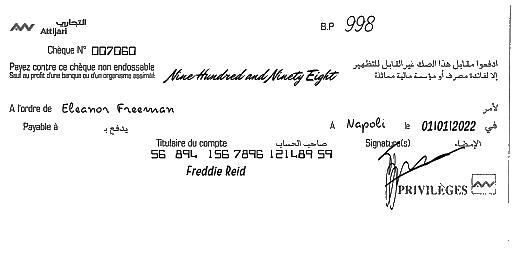 التجاري
Attijari
B.P 998
Chèque N° 007060
Payez contre ce chèque non endossable
Sauf au profit d'une banque ou d'un organisme assimilé
Nine Hundred and Ninety Eight
ادفعوا مقابل هذا الصك غير القابل للتظهير
إلا لفائدة مصرف أو مؤسسة مالية مماثلة
A l'ordre de Eleanor Freeman لأمر
Payable à يدفع بـ
A Napoli le 01|01|2022 في
Titulaire du compte صاحب الحساب
Signature(s) الإمضاء
56 894 156 7896 121489 59
Freddie Reid
PRIVILÈGES